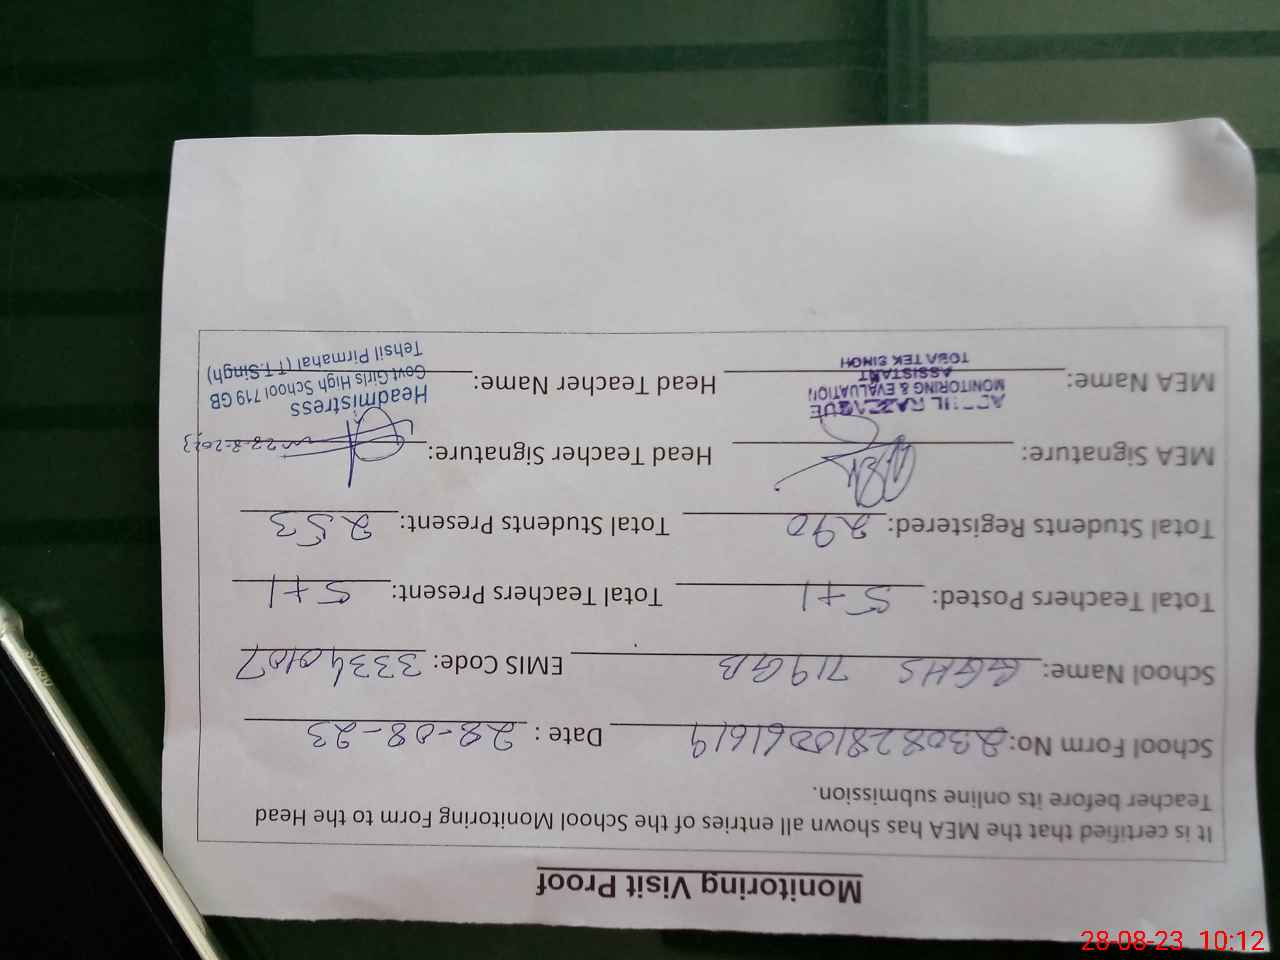 Monitoring Visit Proof
It is certified that the MEA has shown all entries of the School Monitoring Form to the Head
Teacher before its online submission.
School Form No: 23082810061619 Date : 28-08-23
School Name: GGHS 719GB EMIS Code: 33340107
Total Teachers Posted: 5+1 Total Teachers Present: 5+1
Total Students Registered: 290 Total Students Present: 253
MEA Signature: Head Teacher Signature: 28-8-2023
MEA Name: Head Teacher Name:
RAZZAQUE
MONITORING & EVALUATION
ASSISTANT
TOBA TEK SINGH
Headmistress
Govt Girls High School 719 GB
Tehsil Pirmahal (T.T.Singh)
28-08-23 10:12